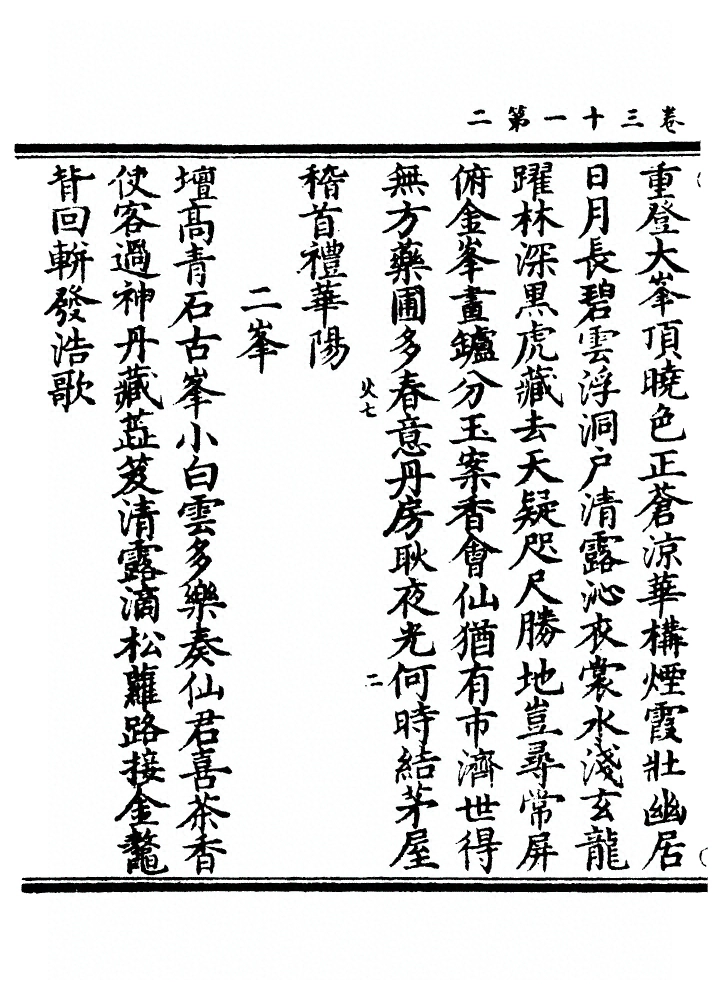 卷三十一第二
重登大峯頂曉色正蒼涼華構煙霞壯幽居
日月長碧雲浮洞户清露沁衣裳水淺玄龍
躍林深黑虎藏去天疑咫尺勝地豈尋常屏
俯金峯畫鑪分玉案香會仙猶有市濟世得
無方藥圃多春意丹房耿夜光何時結茅屋
火七
二
稽首禮華陽
二峯
壇高青石古峯小白雲多樂奏仙君喜茶香
使客過神丹藏蕋笈清露滴松蘿路接金鼇
背回軿發浩歌